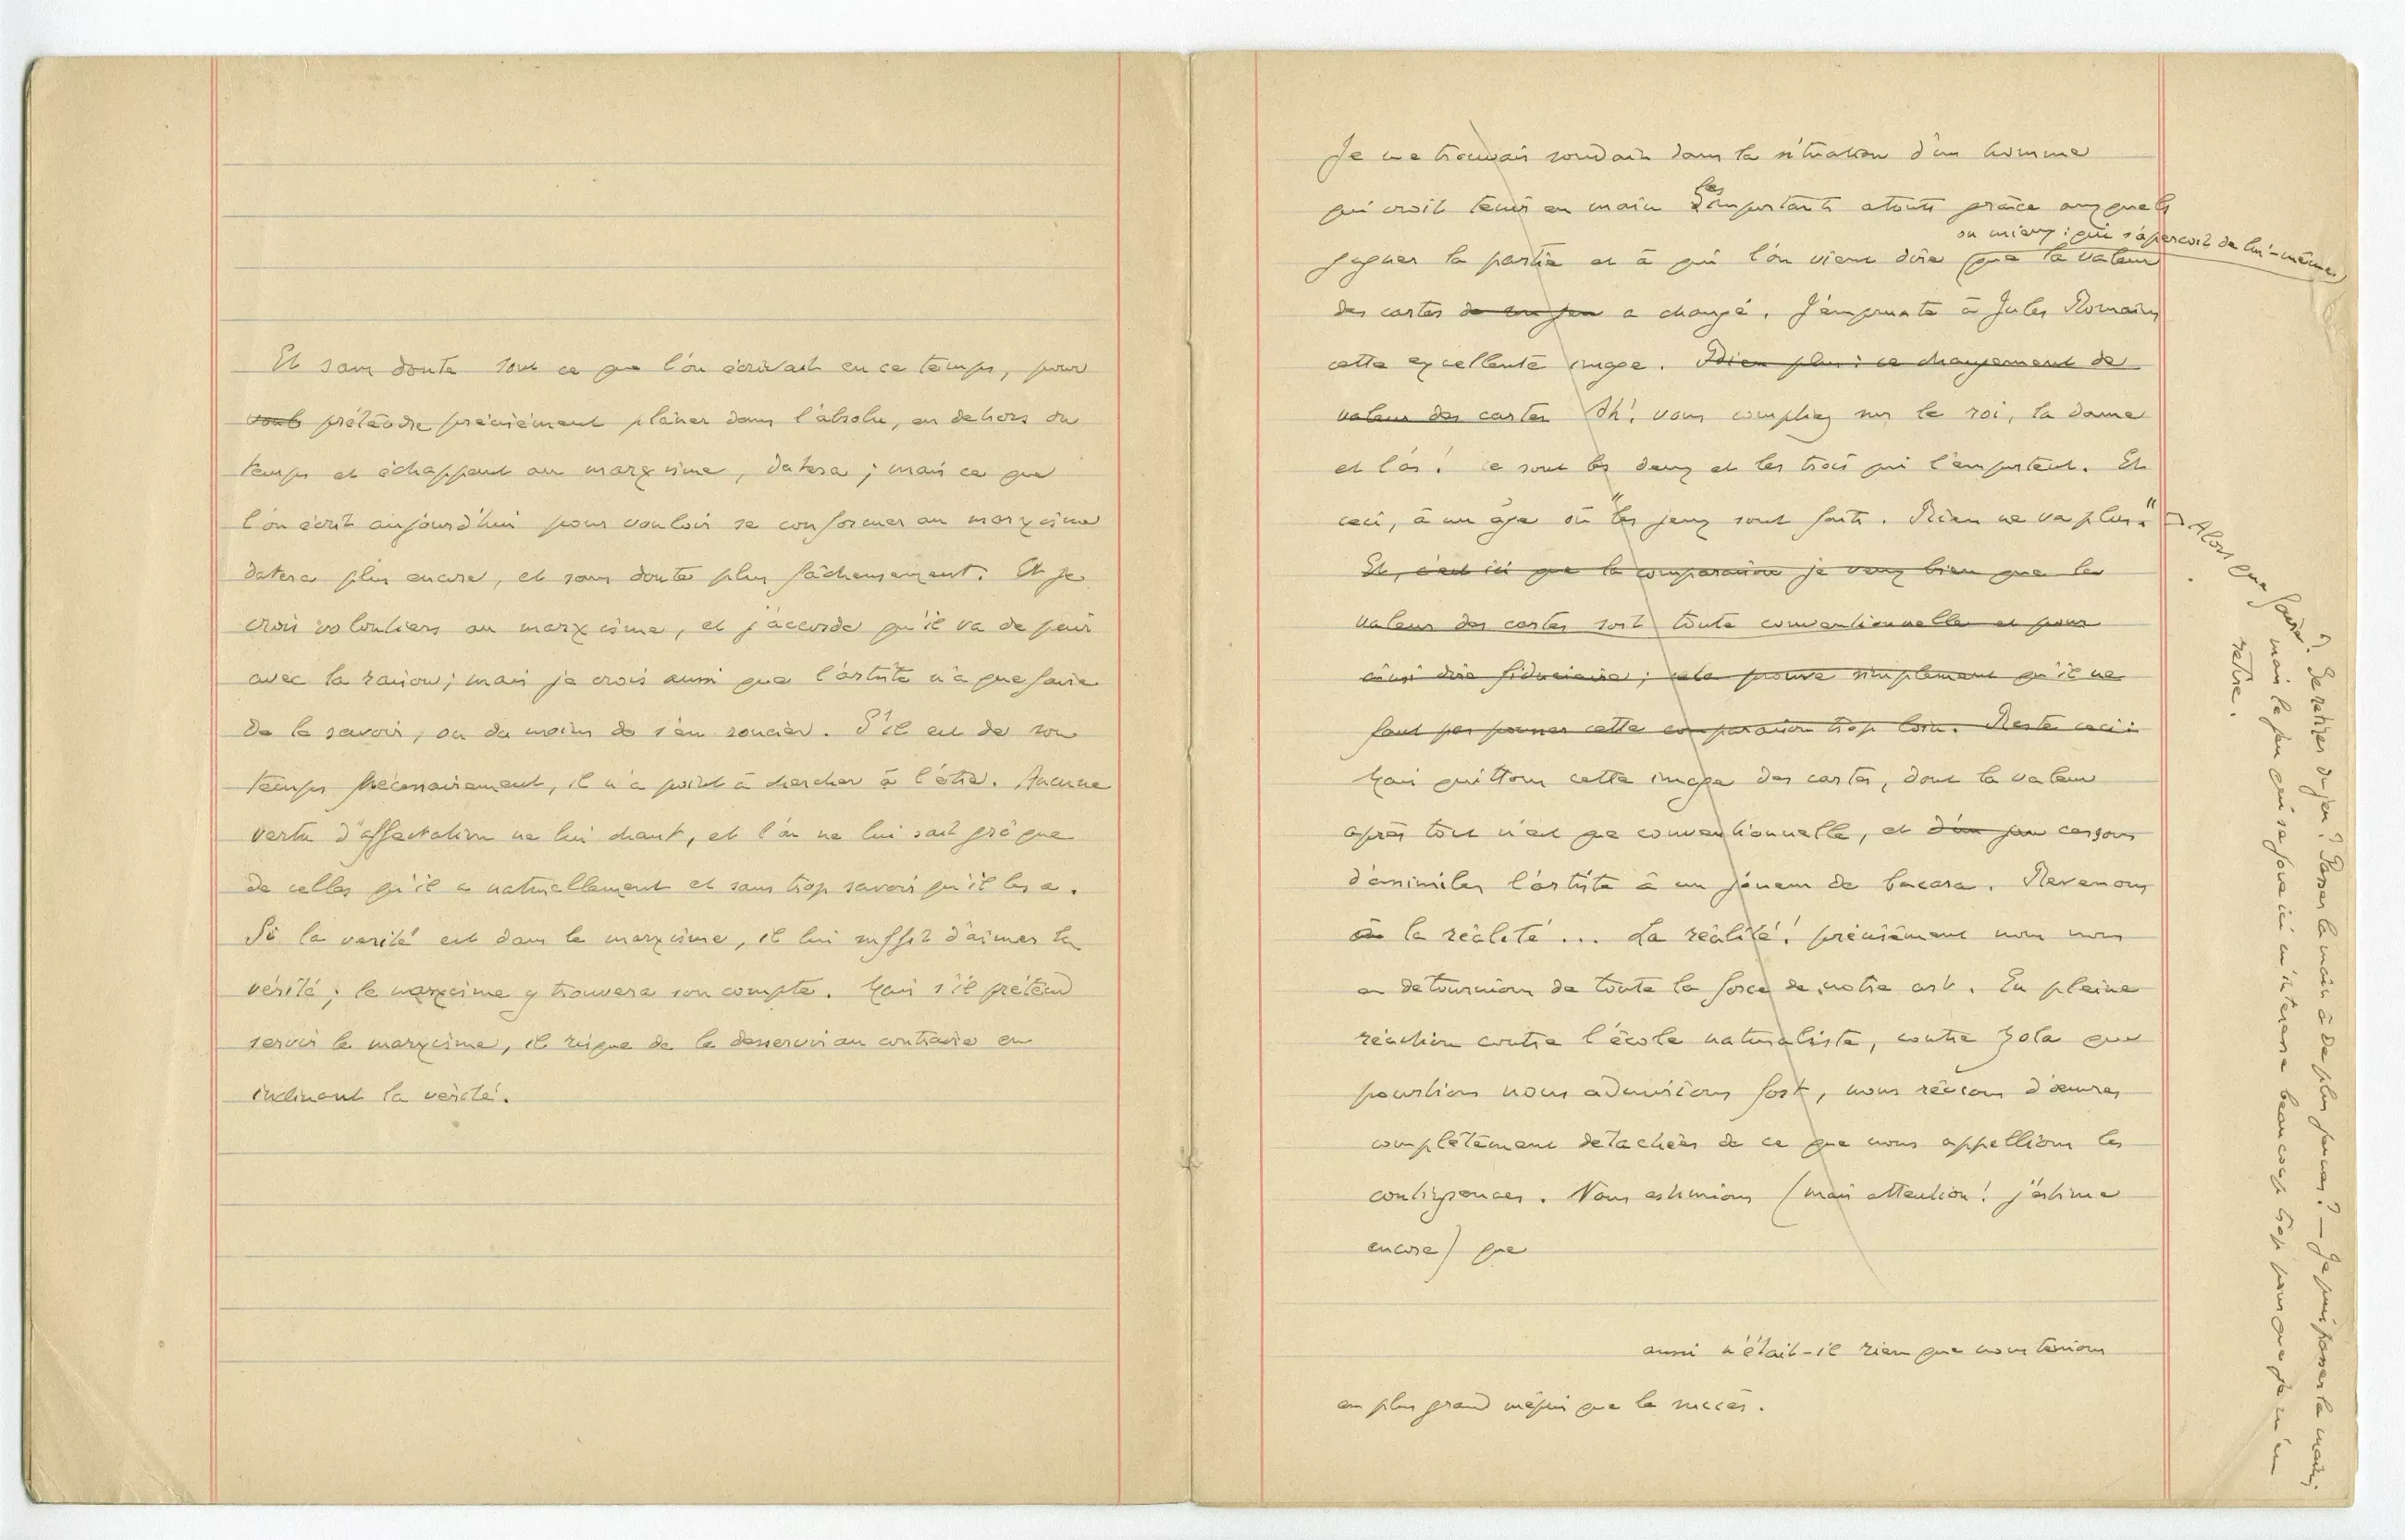 Et sans doute tout ce que l'on écrivait en ce temps, pour
voul prétendre précisément planer dans l'absolu, en dehors du
temps et échappant au marxisme, datera ; mais ce que
l'on écrit aujourd'hui pour vouloir se conformer au marxisme
datera plus encore, et sans doute plus fâcheusement. Et je
crois volontiers au marxisme, et j'accorde qu'il va de pair
avec la raison ; mais je crois aussi que l'artiste n'a que faire
de le savoir, ou du moins de s'en soucier. S'il est de son
temps nécessairement, il n'a point à chercher à l'être. Aucune
vertu d'affectation ne lui chaut, et l'on ne lui sait gré que
de celles qu'il a naturellement et sans trop savoir qu'il les a.
Si la vérité est dans le marxisme, il lui suffit d'aimer la
vérité ; le marxisme y trouvera son compte. Mais s'il prétend
servir le marxisme, il risque de le desservir au contraire en
inclinant la vérité.
Je me trouvais soudain dans la situation d'un homme
les
qui croit tenir en main d'importants atouts grâce auxquels
ou mieux : qui s'aperçoit de lui-même
gagner la partie et à qui l'on vient dire (que la valeur
des cartes de son jeu a changé. J'emprunte à Jules Romains
cette excellente image. Bien plus : ce changement de
valeur des cartes Ah ! vous comptiez sur le roi, la dame
et l'as ! ce sont les deux et les trois qui l'emportent. Et
ceci, à un âge où "les jeux sont faits. Rien ne va plus."
Et, c'est ici que la comparaison je veux bien que la
valeur des cartes soit toute conventionnelle et pour
ainsi dire fiduciaire ; cela prouve simplement qu'il ne
faut pas pousser cette comparaison trop loin. Reste ceci :
Mais quittons cette image des cartes, dont la valeur
après tout n'est que conventionnelle, et d'un jeu cessons
d'assimiler l'artiste à un joueur de bacara. Revenons
à la réalité... La réalité ! précisément nous nous
en détournions de toute la force de notre art. En pleine
réaction contre l'école naturaliste, contre Zola que
pourtant nous admirions fort, nous rêvions d'œuvres
complètement détachées de ce que nous appellions les
contingences. Nous estimions (mais attention ! j'estime
encore) que
aussi n'était-il rien que nous tenions
en plus grand mépris que le succès.
Alors que faire ? Se retirer du jeu ? Passer la main à de plus jeunes ? — Je puis passer la main,
mais le jeu qui se joue ici m'intéresse beaucoup trop pour que je m'en
retire.